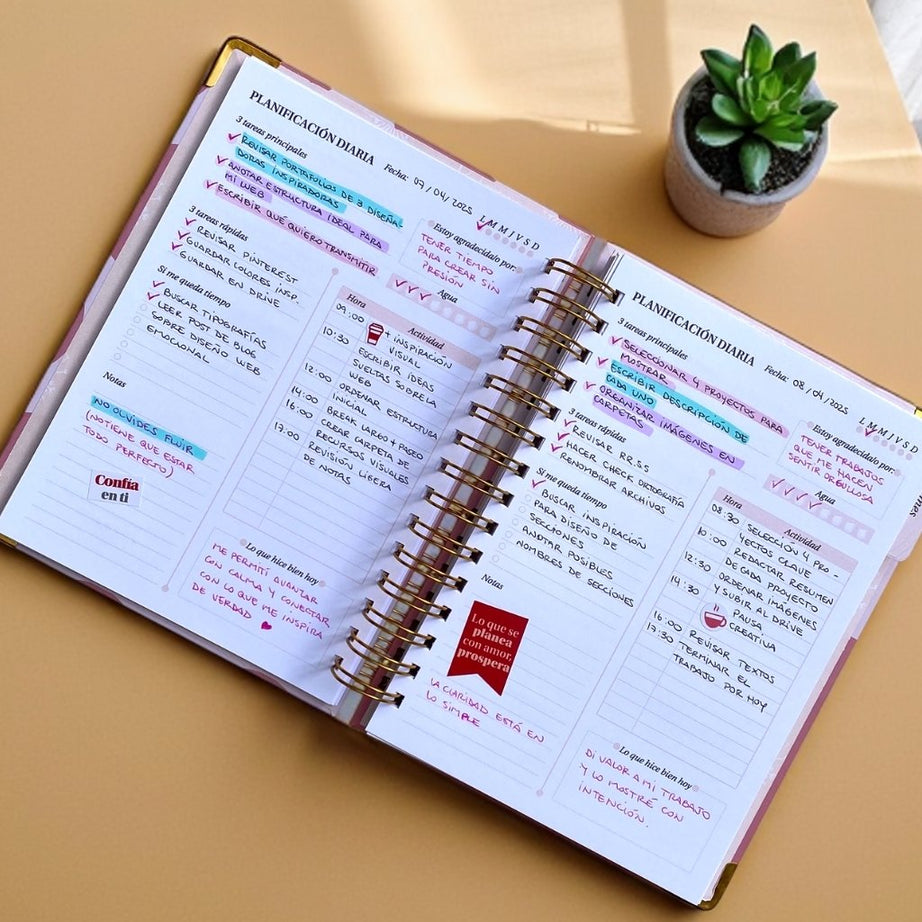 PLANIFICACIÓN DIARIA
Fecha: 07/04/2025
L M M J V S D
3 tareas principales
REVISAR PORTAFOLIOS DE 3 DISEÑA-
DORAS INSPIRADORAS
ANOTAR ESTRUCTURA IDEAL PARA
MI WEB
ESCRIBIR QUÉ QUIERO TRANSMITIR
3 tareas rápidas
REVISAR PINTEREST
GUARDAR COLORES INSP.
GUARDAR EN DRIVE
Si me queda tiempo
BUSCAR TIPOGRAFÍAS
LEER POST DE BLOG
SOBRE DISEÑO WEB
EMOCIONAL
Notas
NO OLVIDES FLUIR
(NO TIENE QUE ESTAR
TODO PERFECTO)
Confía
en ti
Estoy agradecido/a por:
TENER TIEMPO
PARA CREAR SIN
PRESIÓN
Agua
Hora Actividad
09:00 + INSPIRACIÓN
VISUAL
10:30 ESCRIBIR IDEAS
SUELTAS SOBRE LA
WEB
12:00 ORDENAR ESTRUCTURA
INICIAL
14:00 BREAK LARGO + PASEO
16:00 CREAR CARPETA DE
RECURSOS VISUALES
17:00 REVISIÓN LIBERA
DE NOTAS
Lo que hice bien hoy
ME PERMITÍ AVANZAR
CON CALMA Y CONECTAR
CON LO QUE ME INSPIRA
DE VERDAD
PLANIFICACIÓN DIARIA
Fecha: 08/04/2025
L M M J V S D
3 tareas principales
SELECCIONAR 4 PROYECTOS PARA
MOSTRAR
ESCRIBIR DESCRIPCIÓN DE
CADA UNO
ORGANIZAR IMÁGENES EN
CARPETAS
3 tareas rápidas
REVISAR RR.SS
HACER CHECK ORTOGRAFÍA
RENOMBRAR ARCHIVOS
Si me queda tiempo
BUSCAR INSPIRACIÓN
PARA DISEÑO DE
SECCIONES
ANOTAR POSIBLES
NOMBRES DE SECCIONES
Notas
Lo que se
planea
con amor,
prospera
LA CLARIDAD ESTÁ EN
LO SIMPLE
Estoy agradecido/a por:
TENER TRABAJOS
QUE ME HACEN
SENTIR ORGULLOSA
Agua
Hora Actividad
08:30 SELECCIÓN 4 PRO-
YECTOS CLAVE
10:00 REDACTAR RESUMEN
DE CADA PROYECTO
12:30 ORDENAR IMÁGENES
Y SUBIR AL DRIVE
14:30 PAUSA
CREATIVA
16:00 REVISAR TEXTOS
17:30 TERMINAR EL
TRABAJO POR HOY
Lo que hice bien hoy
DI VALOR A MI TRABAJO
Y LO MOSTRÉ CON
INTENCIÓN.